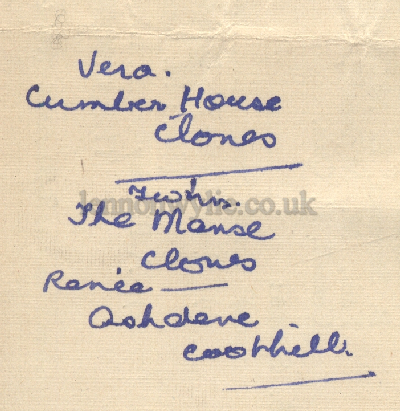 Vera.
Cumber House
Clones
Twins.
lennonwylie.co.uk
The Manse
Clones
Renée —
Ashdene
Cootehill.